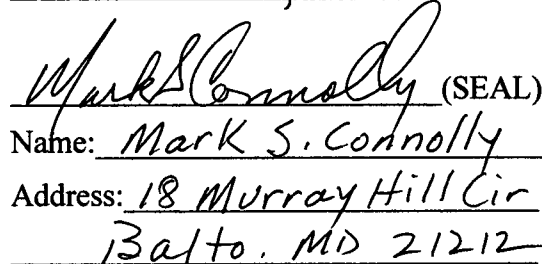 Mark S Connolly (SEAL)
Name: Mark S. Connolly
Address: 18 Murray Hill Cir
Balto. MD 21212